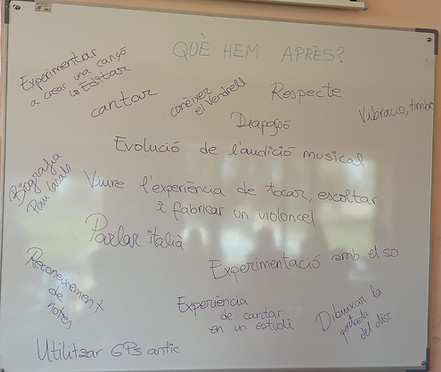 QUÈ HEM APRÈS?
Experimentar
a crear una cançó
Editar
cantar
conèixer
el Vendrell
Respecte
Vibració, timbre
Diapasó
Evolució de l'audició musical
Biografia
Pau Casals
Viure l'experiència de tocar, escoltar
i fabricar un violoncel
Parlar italià
Experimentació amb el so
Reconeixement
de
notes
Experiència
de cantar
en un estudi
Dibuixar la
portada
del disc
Utilitzar GPs antic